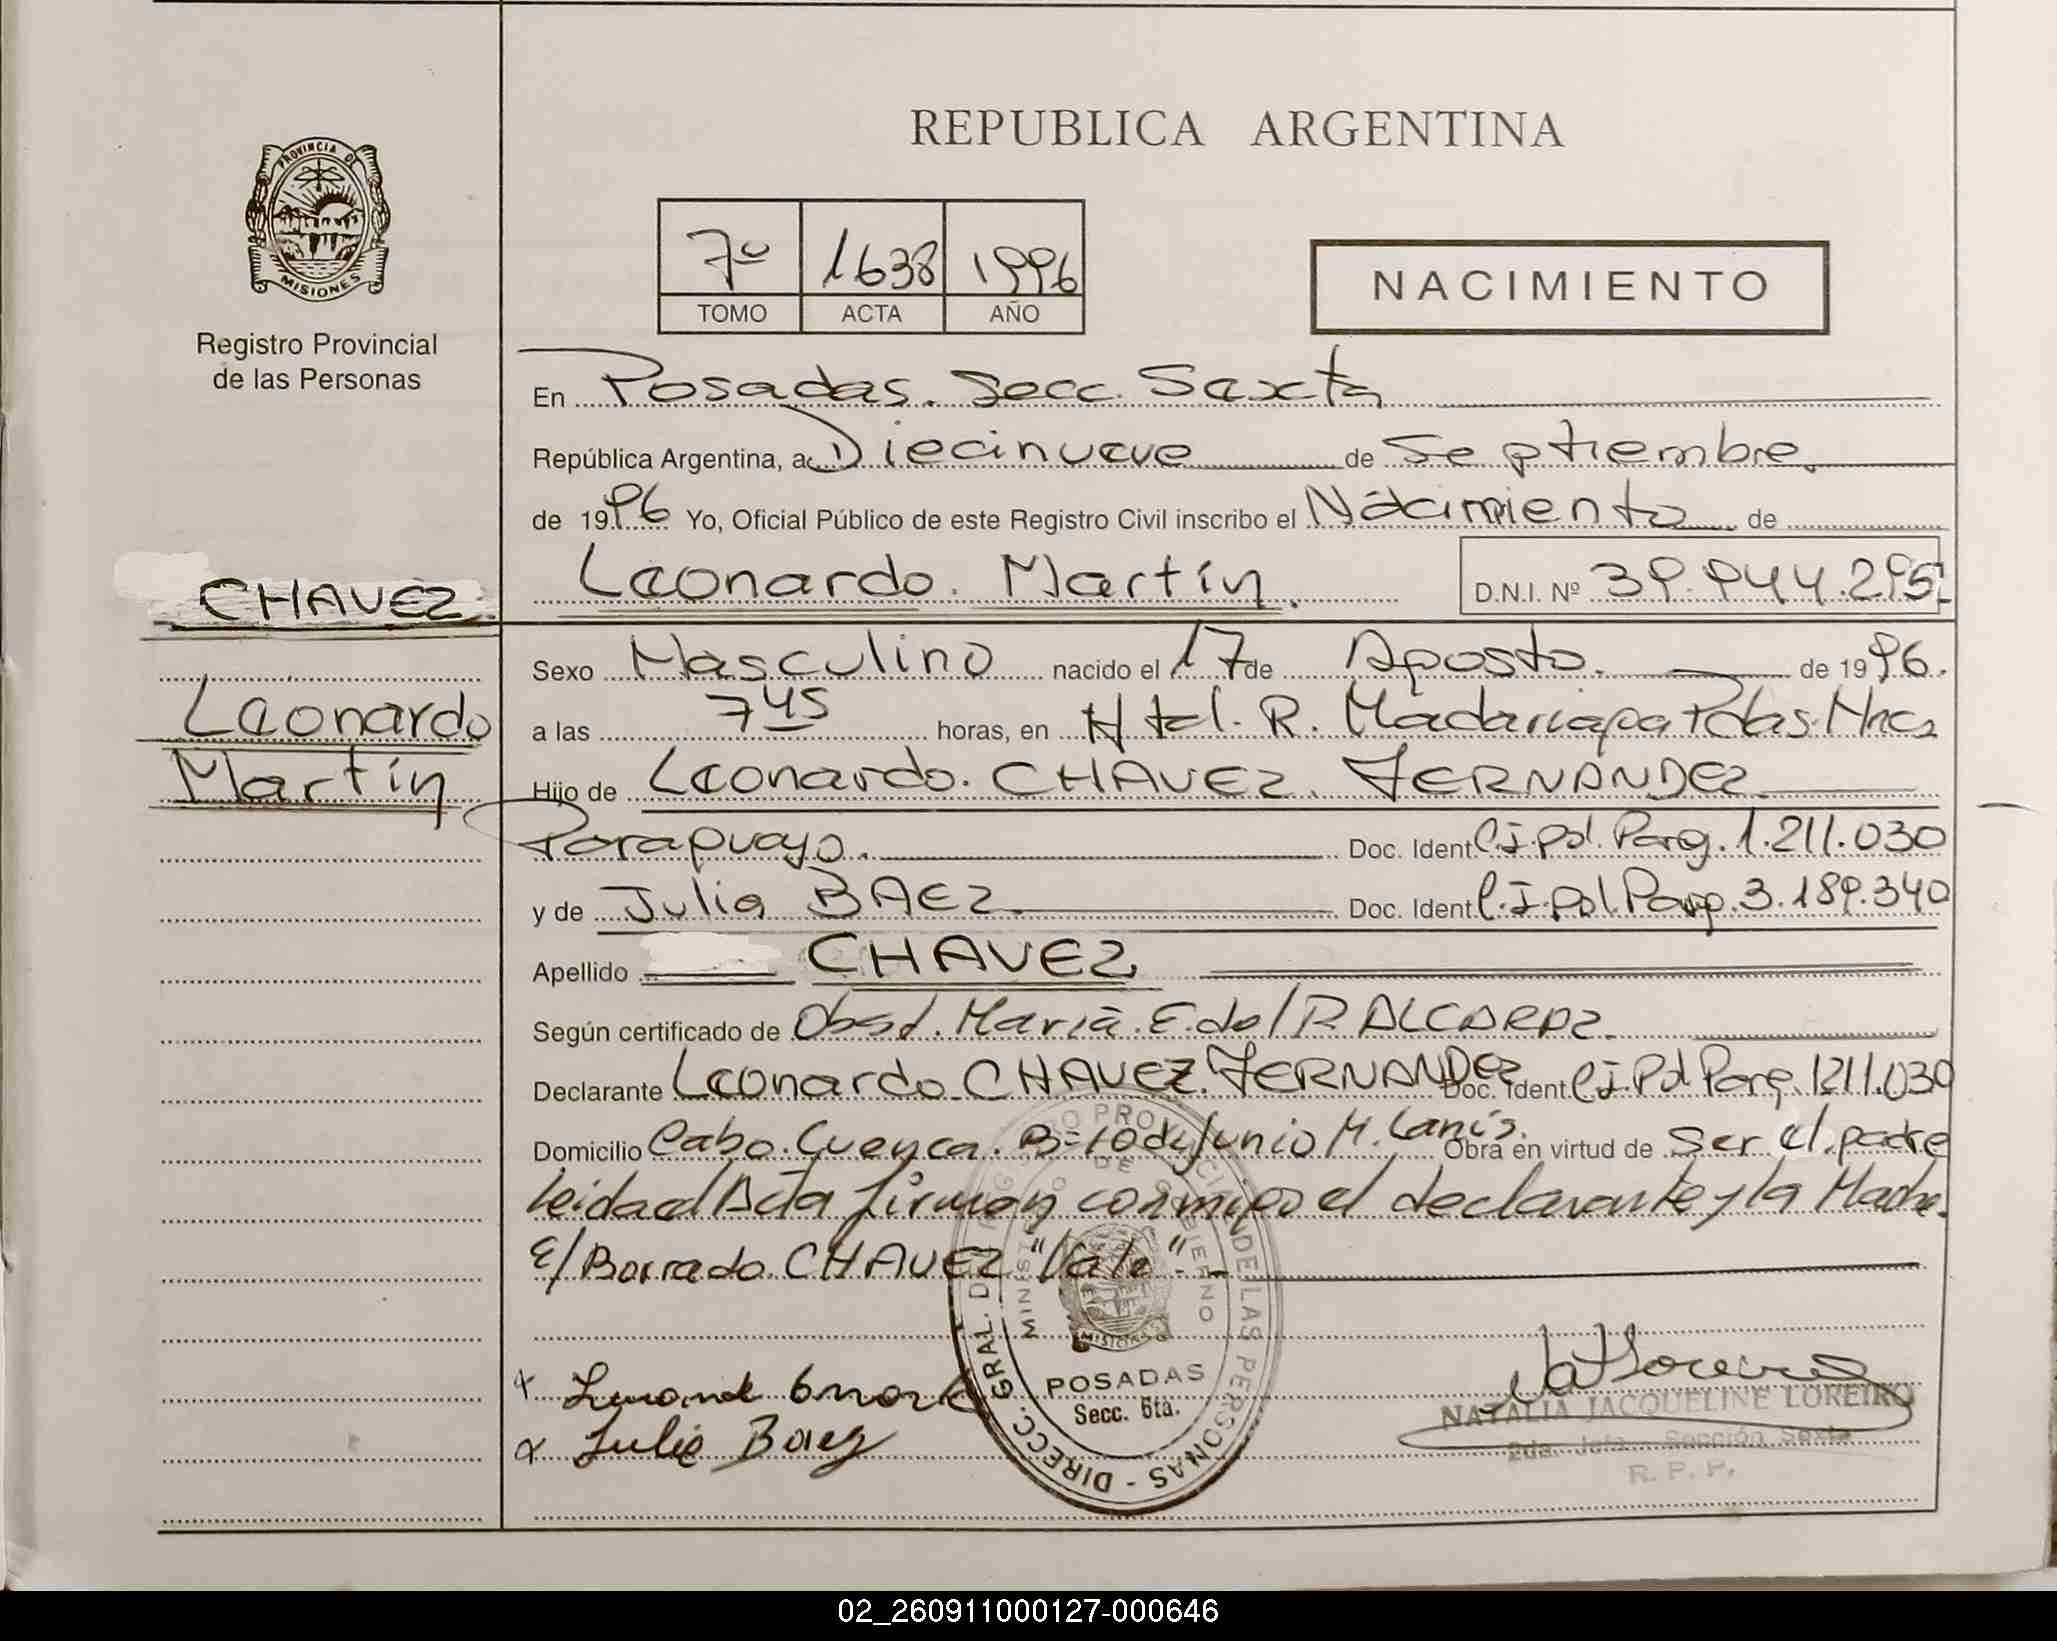 REPUBLICA ARGENTINA
PROVINCIA DE
MISIONES
Registro Provincial
de las Personas
7º 1638 1996
TOMO ACTA AÑO
NACIMIENTO
En Posadas. Secc. Sexta
República Argentina, a Diecinueve de Septiembre.
de 1996 Yo, Oficial Público de este Registro Civil inscribo el Nacimiento de
Leonardo. Martín. D.N.I. Nº 39.944.295
CHAVEZ.
Leonardo
Martín
Sexo Masculino nacido el 17 de Agosto. de 1996.
a las 7 45 horas, en Htal. R. Madariaga Pdas. Mnes
Hijo de Leonardo. CHAVEZ. FERNANDEZ
Paraguayo. Doc. Ident C.I. Pol. Parg. 1.211.030
y de Julia BAEZ Doc. Ident C.I. Pol Parg. 3.189.340
Apellido CHAVEZ
Según certificado de Obst. María. E. del R. ALCARAZ.
Declarante Leonardo CHAVEZ. FERNANDEZ Doc. Ident C.I. Pol Parg. 1211.030
Domicilio Cabo. Cuenca. B= 10 de Junio M. Lanís. Obra en virtud de Ser el padre
leida el Acta firman conmigo el declarante y la Madre.
E/ Borrado CHAVEZ "Vale".-
x
x Julia Baez
DIRECC. GRAL. DEL REGISTRO PROVINCIAL DE LAS PERSONAS
MINISTERIO DE GOBIERNO
MISIONES
POSADAS
Secc. 6ta.
NATALIA JACQUELINE LOREIRO
2da. Jefa Sección Sexta
R. P. P.
02_260911000127-000646